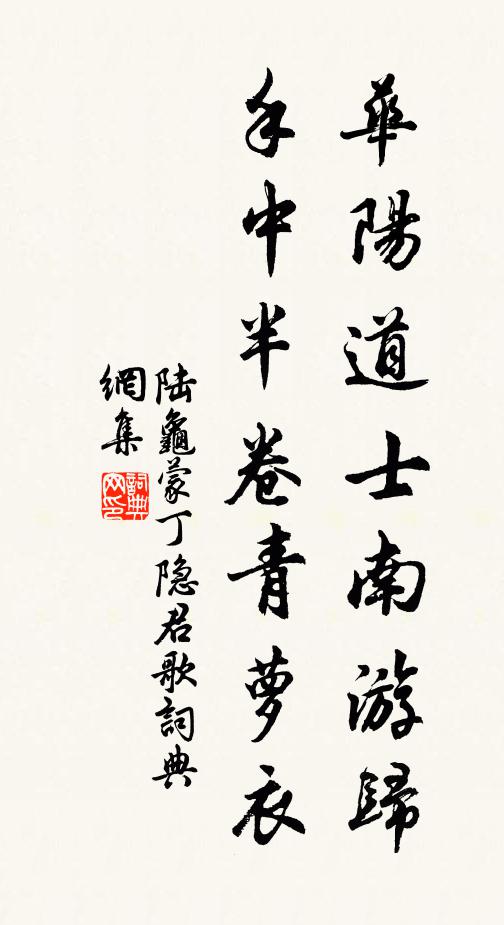 華陽道士南游歸
手中半卷青萝衣
陆龜蒙丁隐君歌詞典
網集
詞典
网印